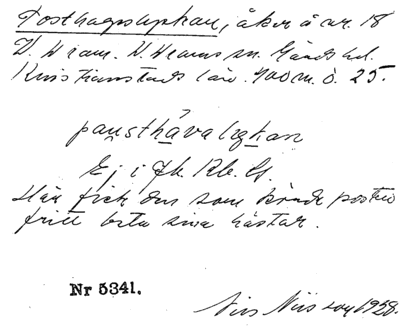 Posthagslyckan, åker å nr. 18
V. Wram. V. Wrams sn. Gärds hd.
Kristianstads län. 400 m. ö. 25.
pausthavalyckan
Ej i Jb. Rb. G.
Här fick den som körde posten
fritt beta sina hästar.
Nr 5341.
Nils Nilsson 1928.